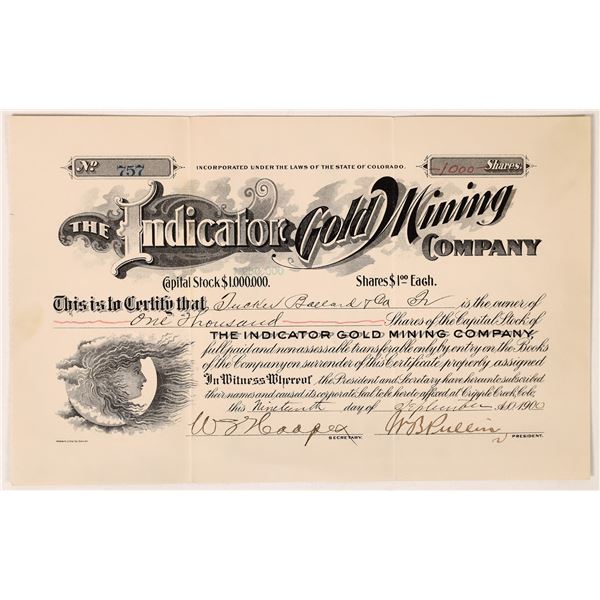 No. 757
INCORPORATED UNDER THE LAWS OF THE STATE OF COLORADO.
1000 Shares.
THE Indicator Gold Mining COMPANY
Capital Stock $1,000,000. Shares $1.00 Each.
This is to Certify that Tucker Ballard & Co Tr is the owner of
One Thousand Shares of the Capital Stock of
THE INDICATOR GOLD MINING COMPANY
full paid and non assessable transferable only by entry on the Books
of the Company on surrender of this Certificate properly assigned
In Witness Whereof, the President and Secretary have hereunto subscribed
their names and caused its corporate Seal to be hereto affixed at Cripple Creek, Colo,
this Nineteenth day of September A.D. 1900
W B Pullin
SECRETARY. PRESIDENT.